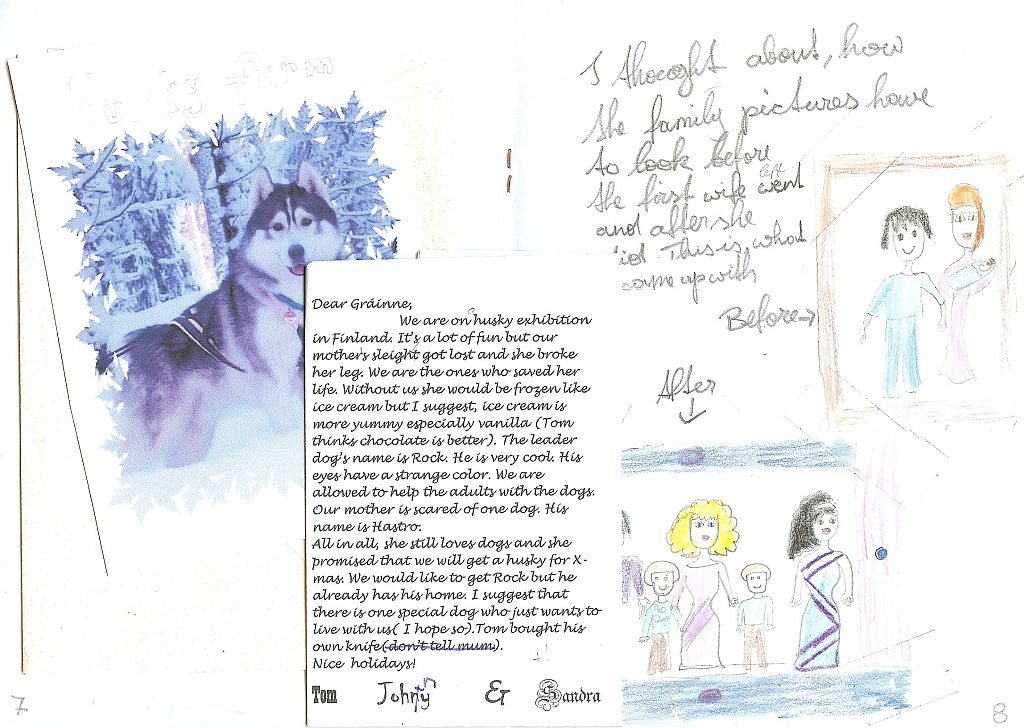 Husky farm
Dear Gráinne,
We are on husky exhibition
in Finland. It's a lot of fun but our
mother's sleight got lost and she broke
her leg. We are the ones who saved her
life. Without us she would be frozen like
ice cream but I suggest, ice cream is
more yummy especially vanilla (Tom
thinks chocolate is better). The leader
dog's name is Rock. He is very cool. His
eyes have a strange color. We are
allowed to help the adults with the dogs.
Our mother is scared of one dog. His
name is Hastro.
All in all, she still loves dogs and she
promised that we will get a husky for X-
mas. We would like to get Rock but he
already has his home. I suggest that
there is one special dog who just wants to
live with us( I hope so).Tom bought his
own knife(don't tell mum).
Nice holidays!
Tom Johny & Sandra
7
I thocoght about, how
the family pictures have
to look before
the first wife went left
and after she
did. This is, what
came up with
Before→
After
8